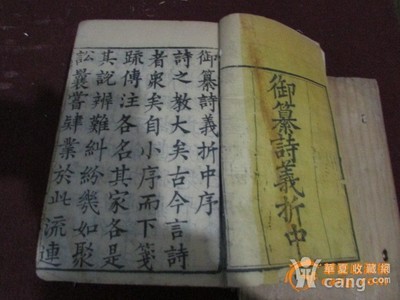 御纂詩義折中
御纂詩義折中序
詩之教大矣古今言詩
者衆矣自小序而下箋
疏傳注各名其家各是
其說辨難糾紛幾如聚
訟曩嘗肄業於此流連
華夏收藏网
cang.com